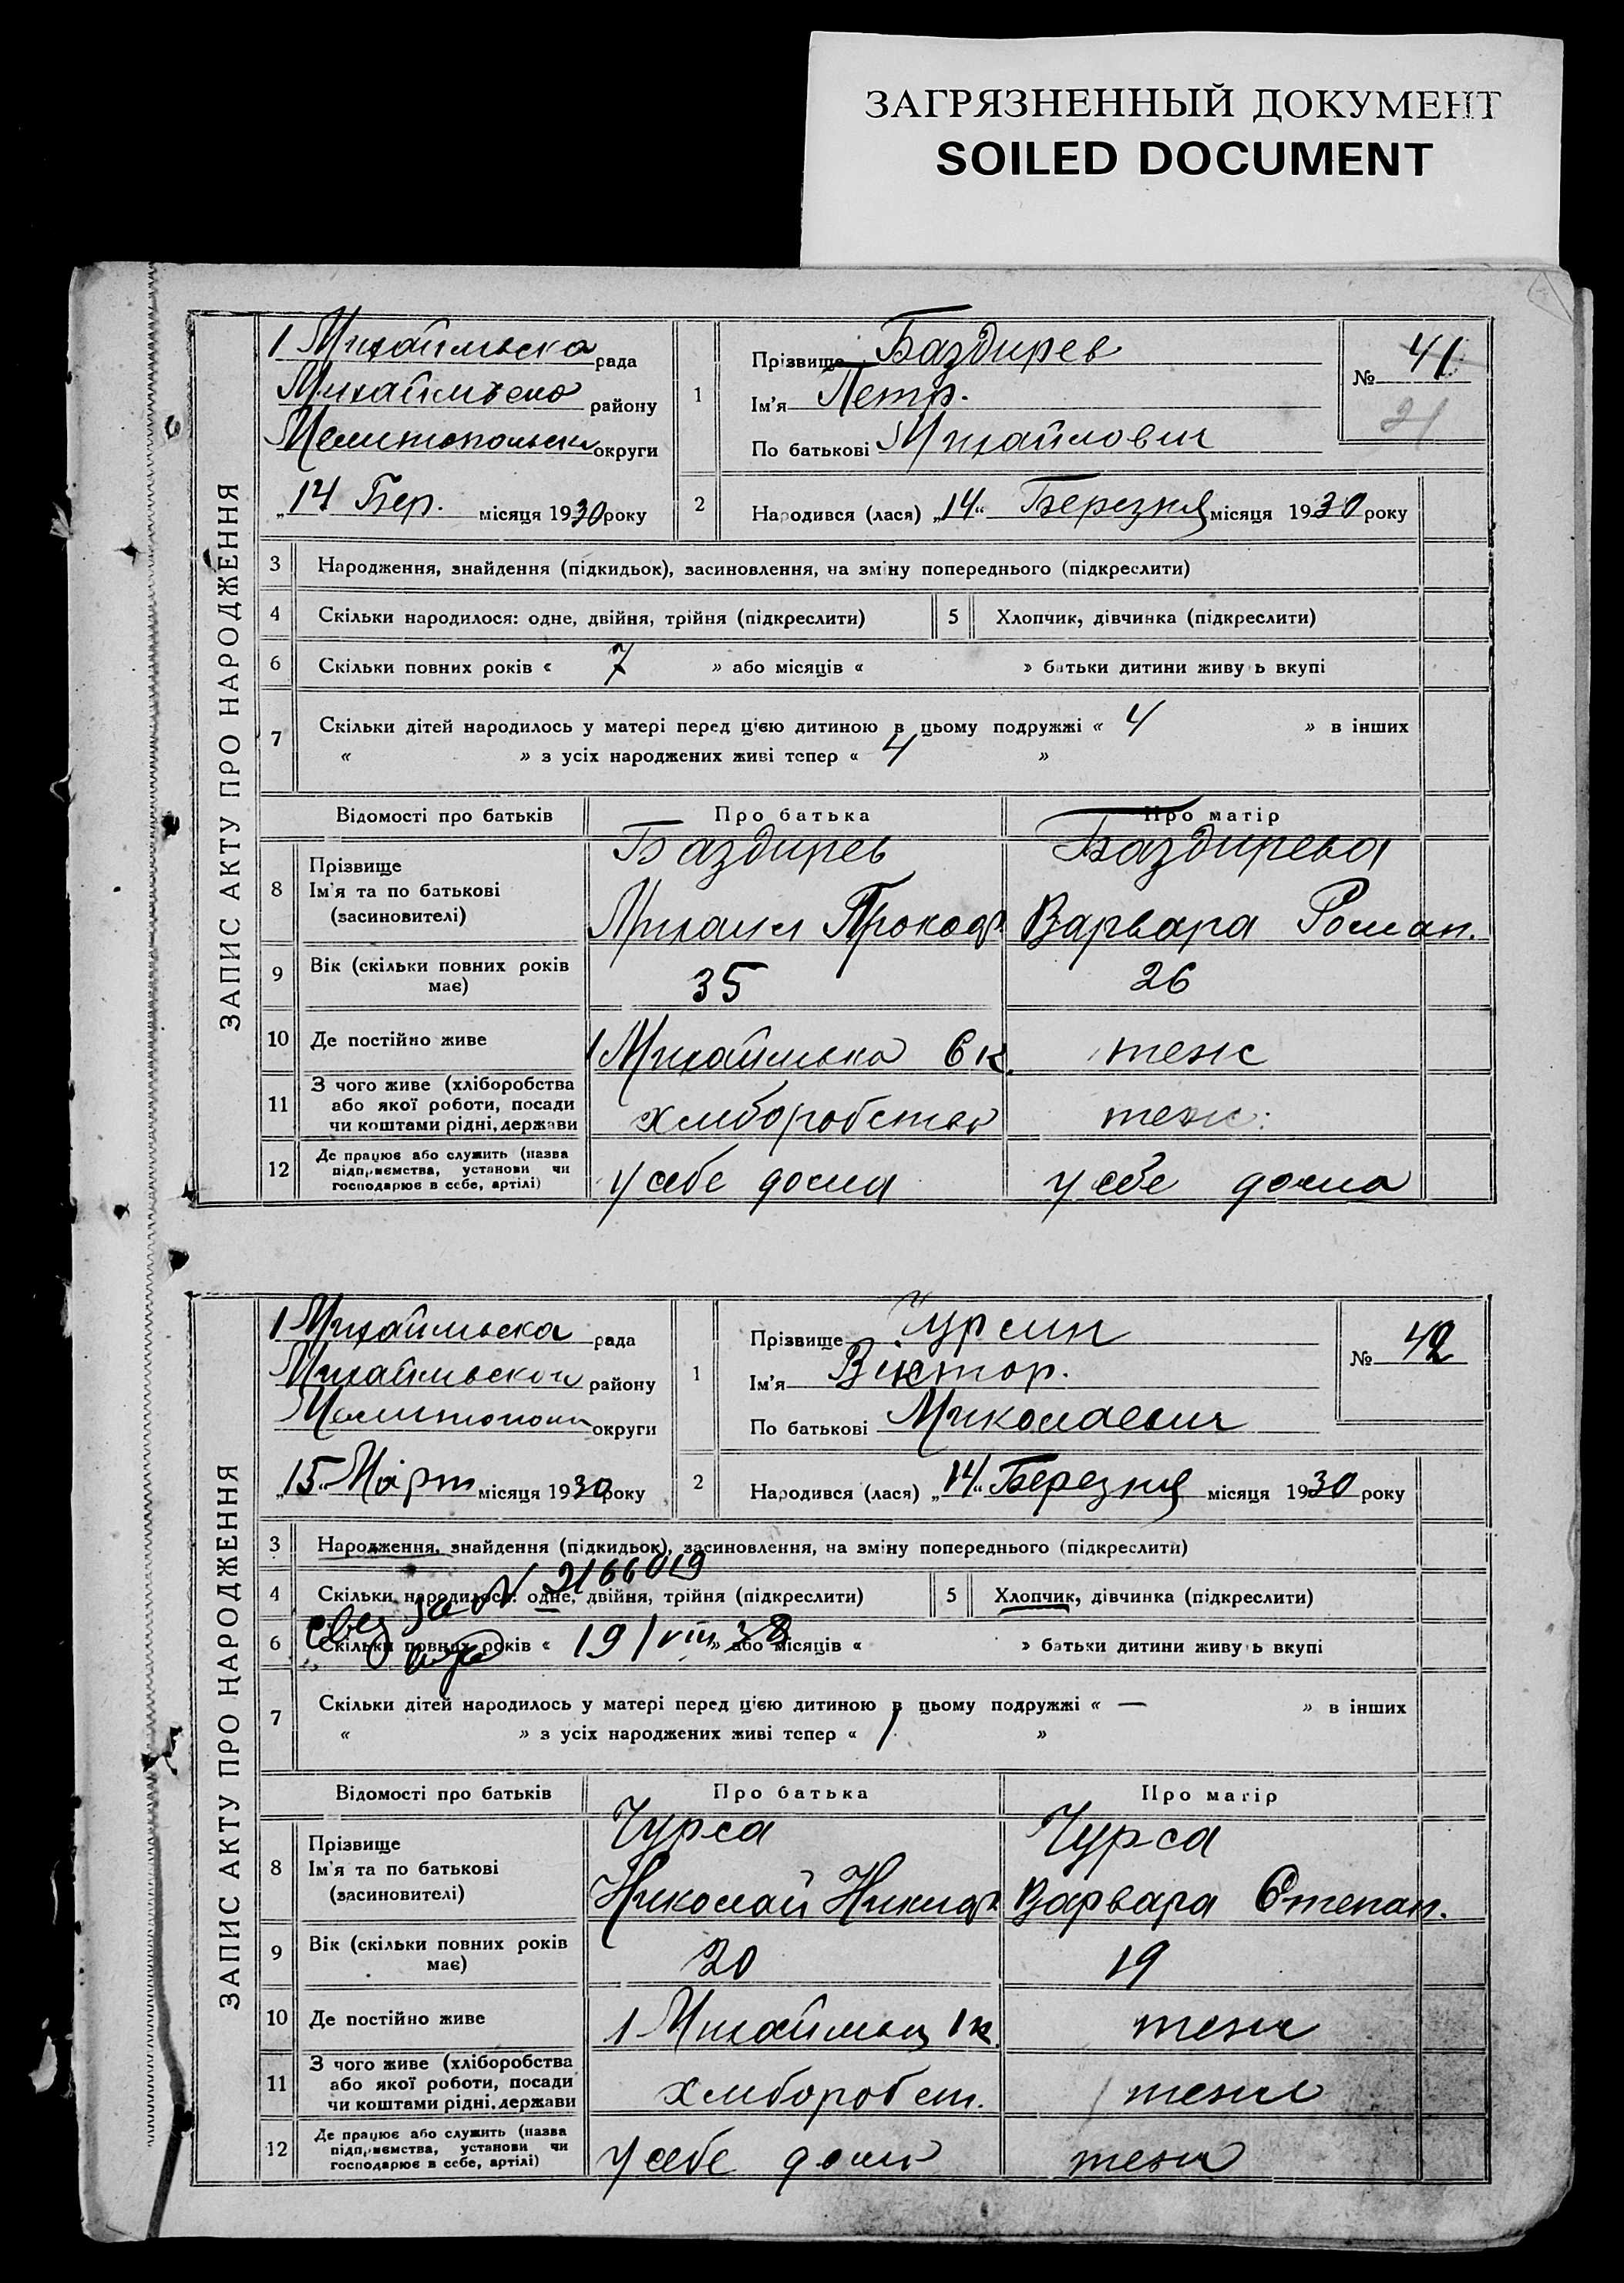 ЗАГРЯЗНЕННЫЙ ДОКУМЕНТ
SOILED DOCUMENT
ЗАПИС АКТУ ПРО НАРОДЖЕННЯ
1 Михайлівська рада
Михайлівсько району
Мелитопольськ округи
„14 Бер. місяця 1930 року
1
Прізвище Баздирев
Ім'я Петр.
По батькові Михайлович
№ 41
21
2
Народився (лася) „14“ Березня місяця 1930 року
3 Народження, знайдення (підкидьок), засиновлення, на зміну попереднього (підкреслити)
4 Скільки народилося: одне, двійня, трійня (підкреслити)
5 Хлопчик, дівчинка (підкреслити)
6 Скільки повних років « 7 » або місяців « » батьки дитини живуть вкупі
7 Скільки дітей народилось у матері перед цією дитиною в цьому подружжі « 4 » в інших
« » з усіх народжених живі тепер « 4 »
Відомості про батьків Про батька Про матір
8 Прізвище
Ім'я та по батькові
(засиновителі)
Баздирев
Михаил Прокоф.
Баздирева
Варвара Роман.
9 Вік (скільки повних років
має)
35 26
10 Де постійно живе 1 Михайлівка 6 к. теж
11 З чого живе (хліборобства
або якої роботи, посади
чи коштами рідні, держави
хліборобство теж.
12 Де працює або служить (назва
підприємства, установи чи
господарює в себе, артілі)
у себе дома у себе дома
ЗАПИС АКТУ ПРО НАРОДЖЕННЯ
1 Михайлівська рада
Михайлівського району
Мелитополь округи
„15“ Март місяця 1930 року
1
Прізвище Чурсин
Ім'я Віктор.
По батькові Миколаевич
№ 42
2
Народився (лася) „14“ Березня місяця 1930 року
3 Народження, знайдення (підкидьок), засиновлення, на зміну попереднього (підкреслити)
4 Скільки народилося: одне, двійня, трійня (підкреслити)
5 Хлопчик, дівчинка (підкреслити)
за N 2166019
6 Скільки повних років « » або місяців « » батьки дитини живуть вкупі
19/VIII 38
7 Скільки дітей народилось у матері перед цією дитиною в цьому подружжі « — » в інших
« » з усіх народжених живі тепер « 1 »
Відомості про батьків Про батька Про матір
8 Прізвище
Ім'я та по батькові
(засиновителі)
Чурса
Николай Никиф.
Чурса
Варвара Степан.
9 Вік (скільки повних років
має)
20 19
10 Де постійно живе 1 Михайлівц 1 к. теж
11 З чого живе (хліборобства
або якої роботи, посади
чи коштами рідні, держави
хліборобст. теж
12 Де працює або служить (назва
підприємства, установи чи
господарює в себе, артілі)
у себе дома теж